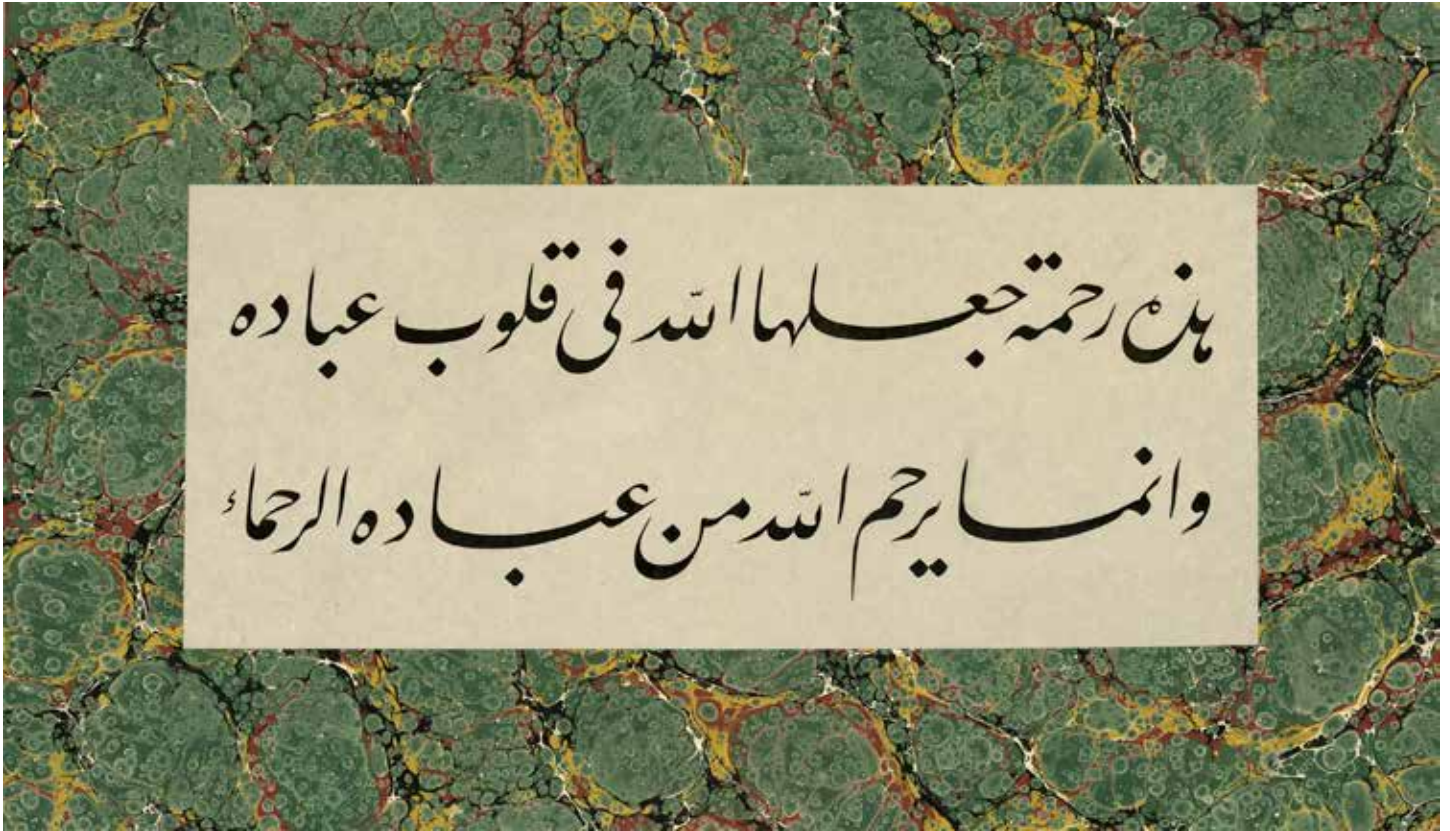 هذه رحمة جعلها الله فى قلوب عباده
وانما يرحم الله من عباده الرحماء